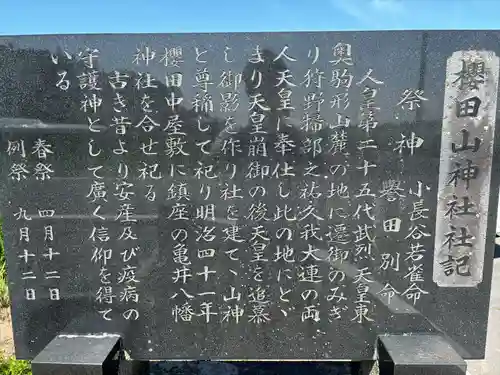 櫻田山神社社記
祭神 小長谷若雀命
譽田別命
人皇第二十五代武烈天皇東
奥駒形山麓の地に遷御のみぎ
り狩野掃部之祐久我大連の両
人天皇に奉仕し此の地にとゞ
まり天皇崩御の後天皇を追慕
し御影を作り社を建て、山神
と尊稱して祀り明治四十一年
櫻田中屋敷に鎮座の亀井八幡
神社を合せ祀る
古き昔より安産及び疫病の
守護神として廣く信仰を得て
いる
春祭 四月十二日
例祭 九月十二日